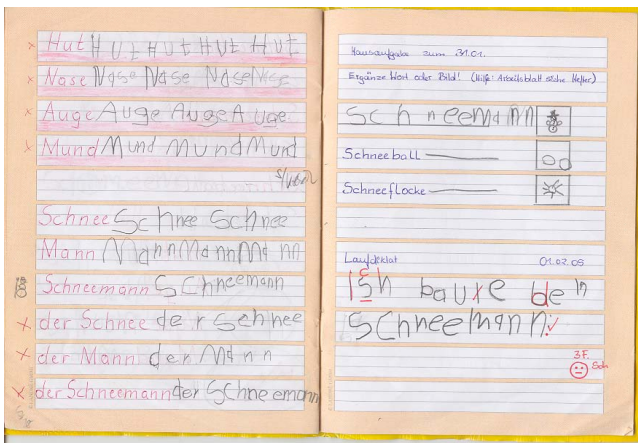 Hut Hut Hut Hut Hut
Nase Nase Nase Nase Nase
Auge Auge Auge Auge
Mund Mund Mund Mund
Schnee Schnee Schnee
Mann Mann Mann Mann
Schneemann Schneemann
der Schnee der Schnee
der Mann der Mann
der Schneemann der Schneemann
Hausaufgabe zum 31.01.
Ergänze Wort oder Bild! (Hilfe: Arbeitsblatt siehe Hefter)
Schneemann
Schneeball
Schneeflocke
Laufdiktat 01.02.05
ish bauxe den
Schneemann.
3 F.